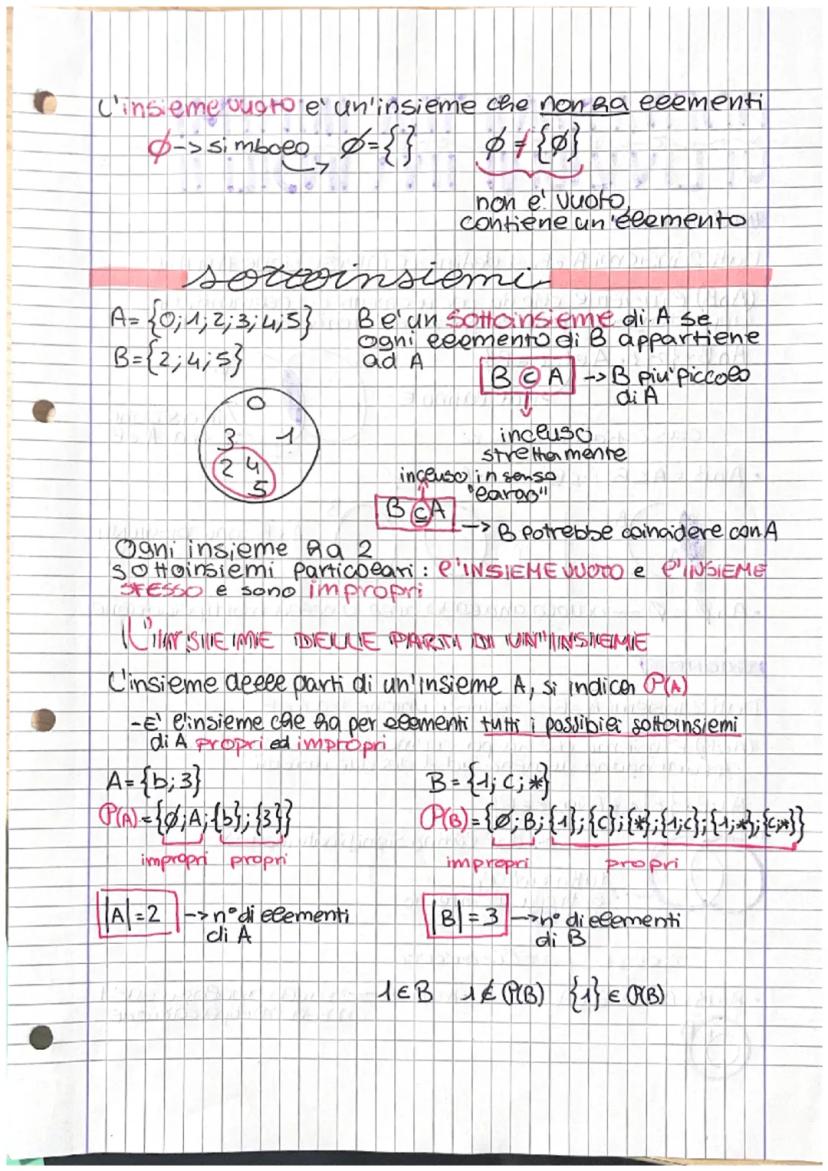 L'insieme vuoto e' un'insieme che non ha elementi
∅->simbolo ∅={} ∅≠{∅}
non e' vuoto,
contiene un'elemento
sottoinsiemi
A={0;1;2;3;4;5}
B={2;4;5}
B e' un sottoinsieme di A se
ogni elemento di B appartiene
ad A
B⊂A -> B piu' piccolo
di A
incluso
strettamente
0
3 1
2 4
5
incluso in senso
"largo"
B⊆A
-> B potrebbe coincidere con A
Ogni insieme ha 2
sottoinsiemi particolari: l'INSIEME VUOTO e l'INSIEME
STESSO e sono impropri
L'INSIEME DELLE PARTI DI UN'INSIEME
L'insieme delle parti di un'insieme A, si indica P(A)
-E' l'insieme che ha per elementi tutti i possibili sottoinsiemi
di A propri ed impropri
A={b;3}
P(A)={∅;A;{b};{3}}
impropri propri
|A|=2 -> n° di elementi
di A
B={1;c;*}
P(B)={∅;B;{1};{c};{*};{1;c};{1;*};{c;*}}
impropri propri
|B|=3 -> n° di elementi
di B
1∈B 1∉P(B) {1}∈P(B)